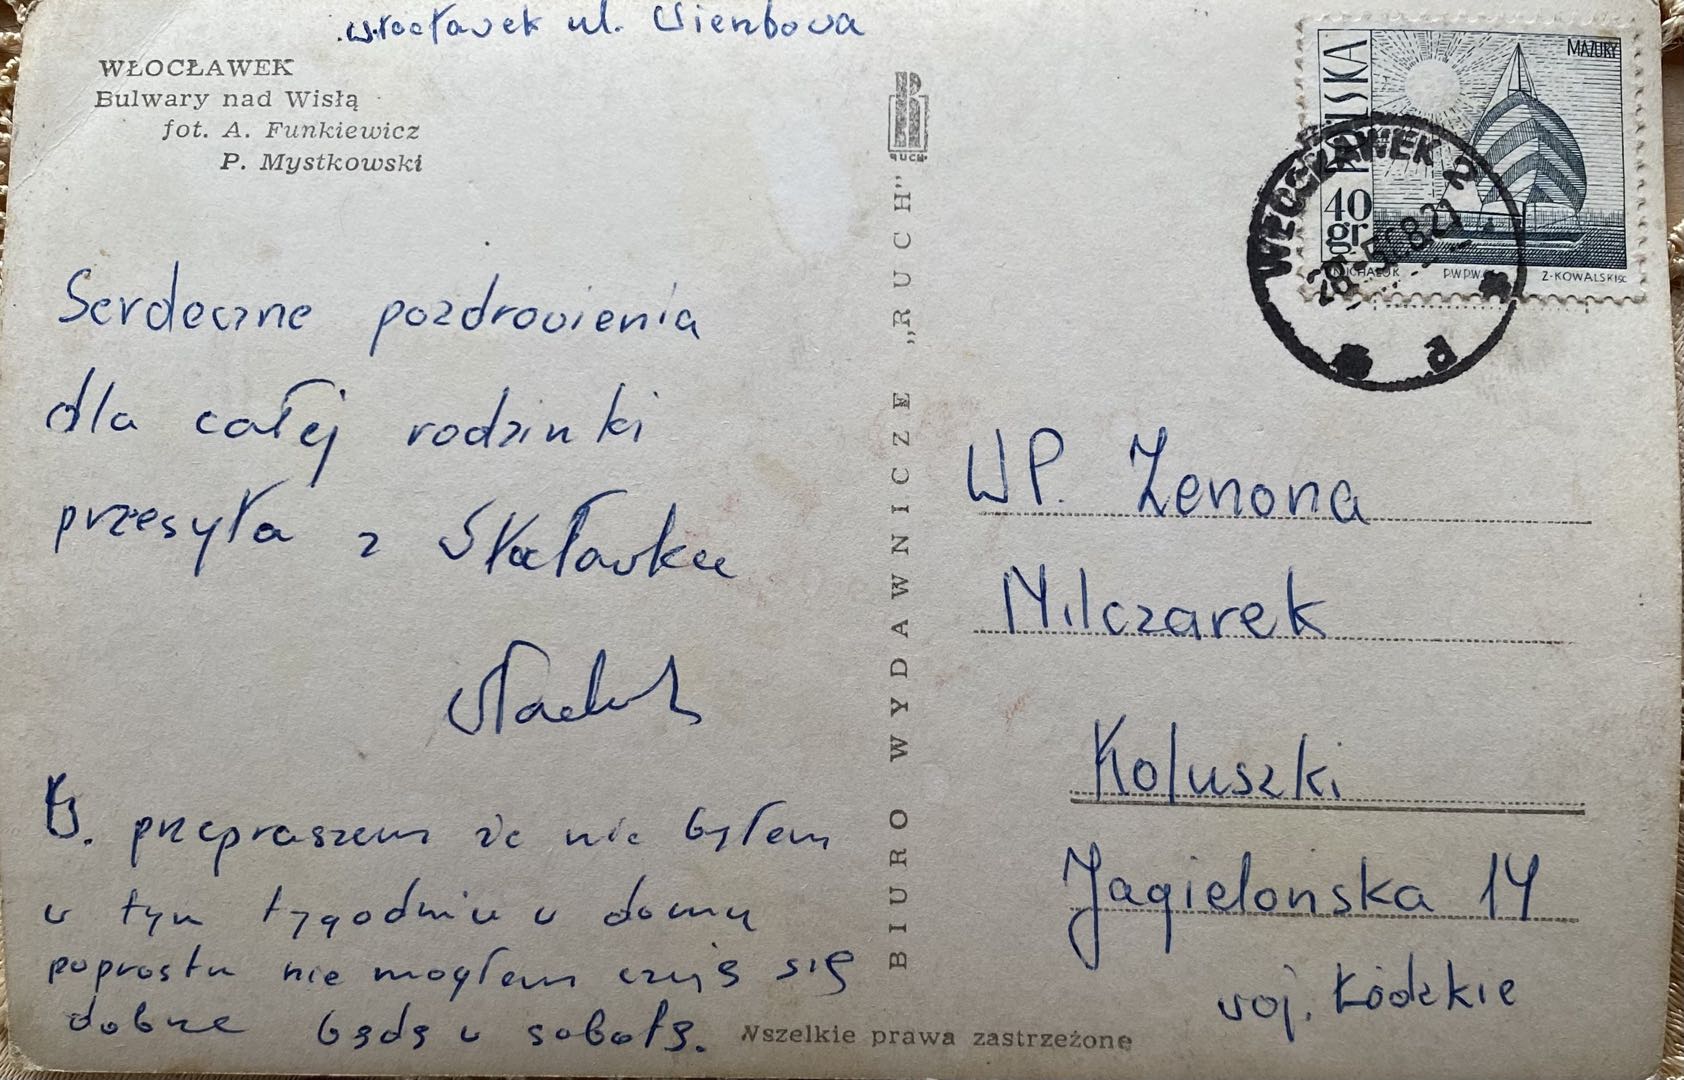 Włocławek ul. Wienbowa
WŁOCŁAWEK
Bulwary nad Wisłą
fot. A. Funkiewicz
P. Mystkowski
Serdeczne pozdrowienia
dla całej rodzinki
przesyła z Włocławka
B. przepraszem że nie byłem
w tym tygodniu w domu
poprostu nie mogłem czuję się
dobrze będę w sobotę.
Wszelkie prawa zastrzeżone
BIURO WYDAWNICZE „RUCH”
RUCH
POLSKA
MAZURY
40
gr
MICHALUK P.W.P.W. Z. KOWALSKI SC
WŁOCŁAWEK 2
WP. Zenona
Milczarek
Koluszki
Jagielonska 14
woj. Łódzkie